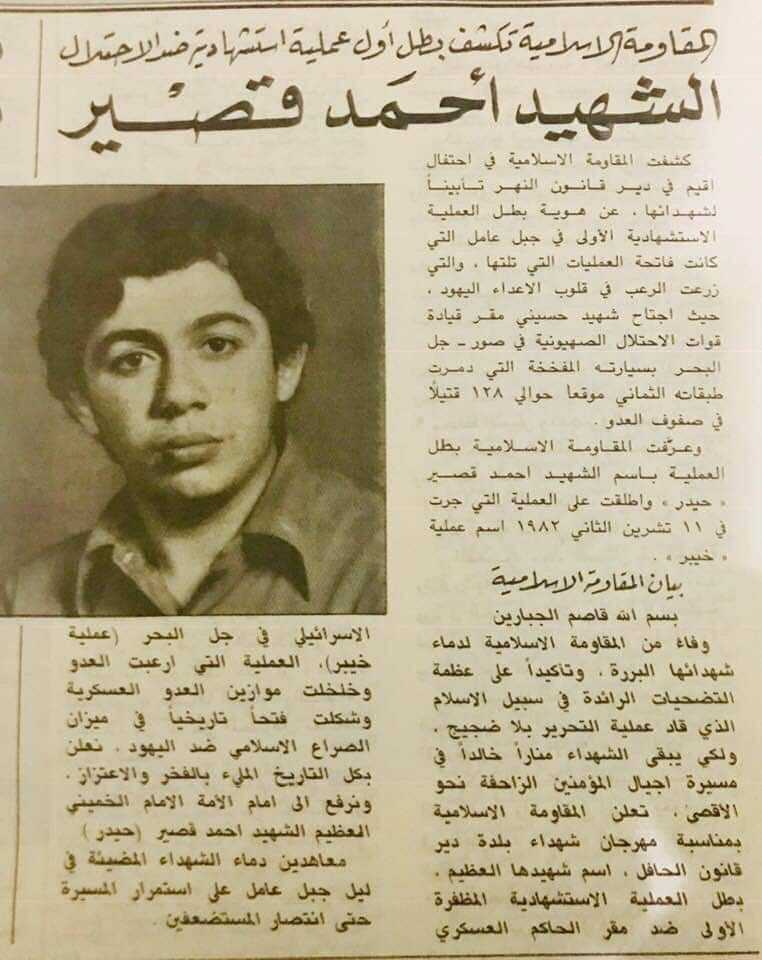 المقاومة الاسلامية تكشف بطل أول عملية استشهادية ضد الاحتلال
الشهيد أحمَد قصْير
كشفت المقاومة الاسلامية في احتفال
اقيم في دير قانون النهر تأبيناً
لشهدائها ، عن هوية بطل العملية
الاستشهادية الأولى في جبل عامل التي
كانت فاتحة العمليات التي تلتها ، والتي
زرعت الرعب في قلوب الاعداء اليهود ،
حيث اجتاح شهيد حسيني مقر قيادة
قوات الاحتلال الصهيونية في صور ـ جل
البحر بسيارته المفخخة التي دمرت
طبقاته الثماني موقعاً حوالي ١٢٨ قتيلًا
في صفوف العدو .
وعرَّفت المقاومة الاسلامية بطل
العملية باسم الشهيد احمد قصير
« حيدر » واطلقت على العملية التي جرت
في ١١ تشرين الثاني ١٩٨٢ اسم عملية
« خيبر » .
بيان المقاومة الاسلامية
بسم الله قاصم الجبارين
وفاءً من المقاومة الاسلامية لدماء
شهدائها البررة ، وتأكيداً على عظمة
التضحيات الرائدة في سبيل الاسلام
الذي قاد عملية التحرير بلا ضجيج ،
ولكي يبقى الشهداء مناراً خالداً في
مسيرة اجيال المؤمنين الزاحفة نحو
الأقصى ، تعلن المقاومة الاسلامية
بمناسبة مهرجان شهداء بلدة دير
قانون الحافل ، اسم شهيدها العظيم ،
بطل العملية الاستشهادية المظفرة
الأولى ضد مقر الحاكم العسكري
الاسرائيلي في جل البحر (عملية
خيبر)، العملية التي ارعبت العدو
وخلخلت موازين العدو العسكرية
وشكلت فتحاً تاريخياً في ميزان
الصراع الاسلامي ضد اليهود . نعلن
بكل التاريخ المليء بالفخر والاعتزاز .
ونرفع الى امام الأمة الامام الخميني
العظيم الشهيد احمد قصير (حيدر )
معاهدين دماء الشهداء المضيئة في
ليل جبل عامل على استمرار المسيرة
حتى انتصار المستضعفين .